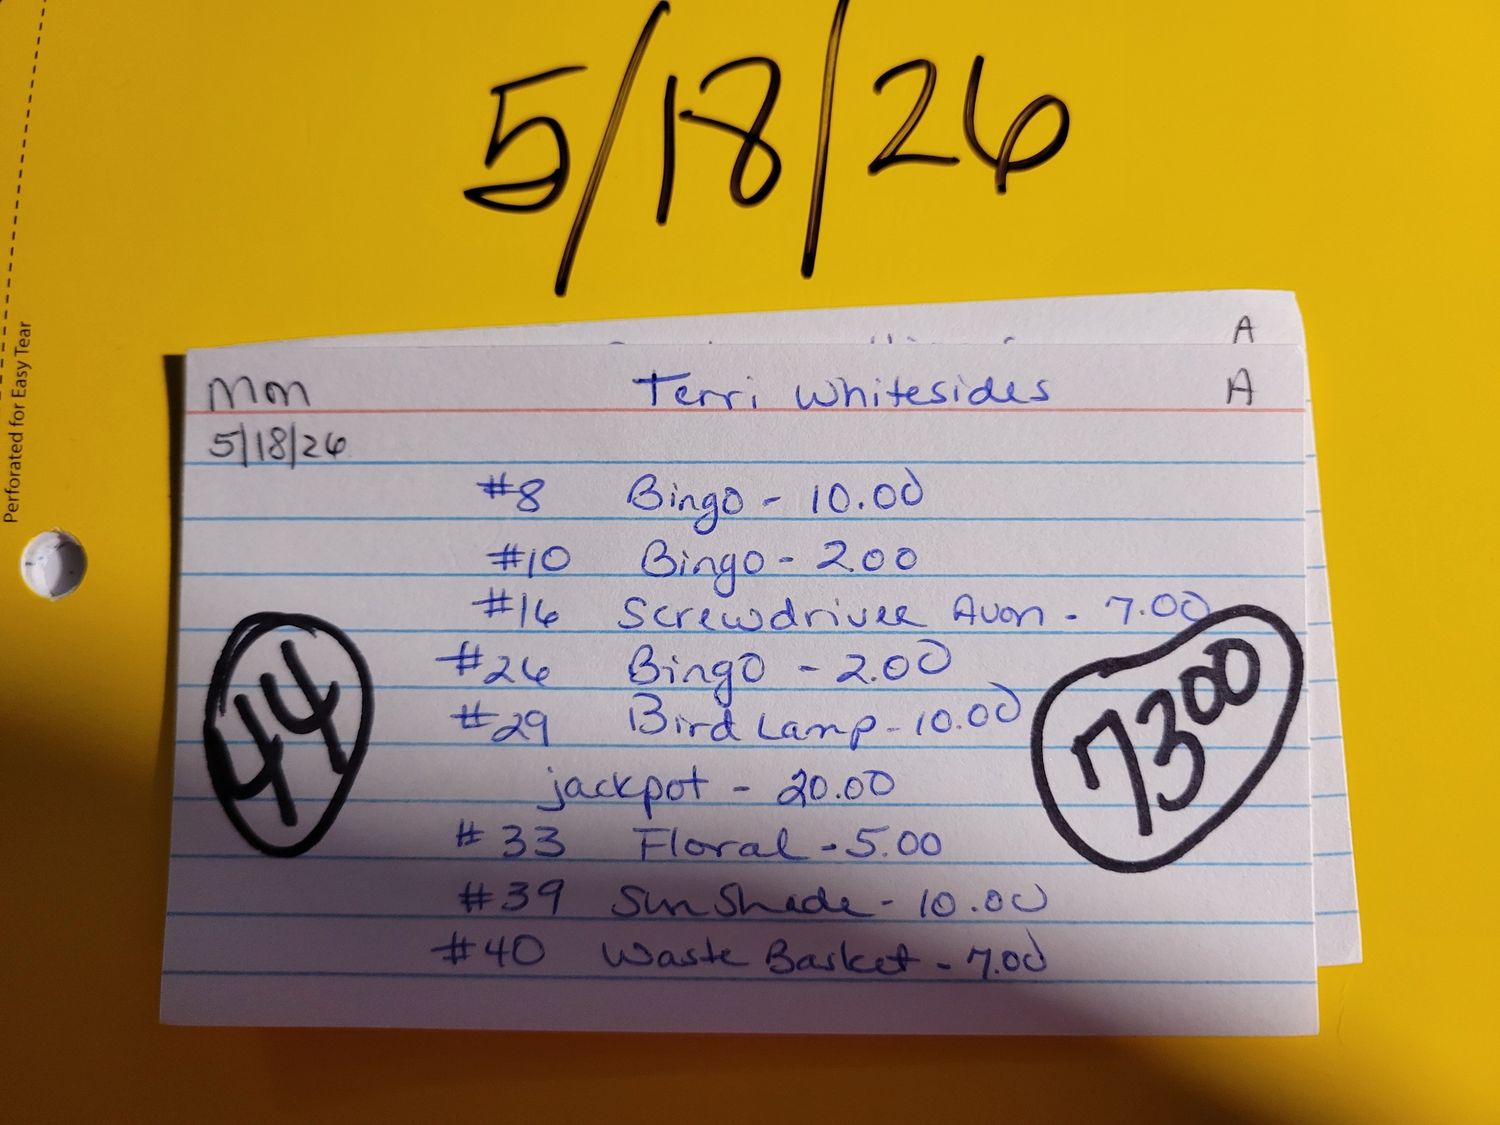 5/18/26
Perforated for Easy Tear
A
Mon Terri Whitesides A
5/18/26
#8 Bingo - 10.00
#10 Bingo - 2.00
#16 Screwdriver Avon - 7.00
#26 Bingo - 2.00
#29 Bird Lamp - 10.00
jackpot - 20.00
#33 Floral - 5.00
#39 Sun Shade - 10.00
#40 Waste Basket - 7.00
44
7300